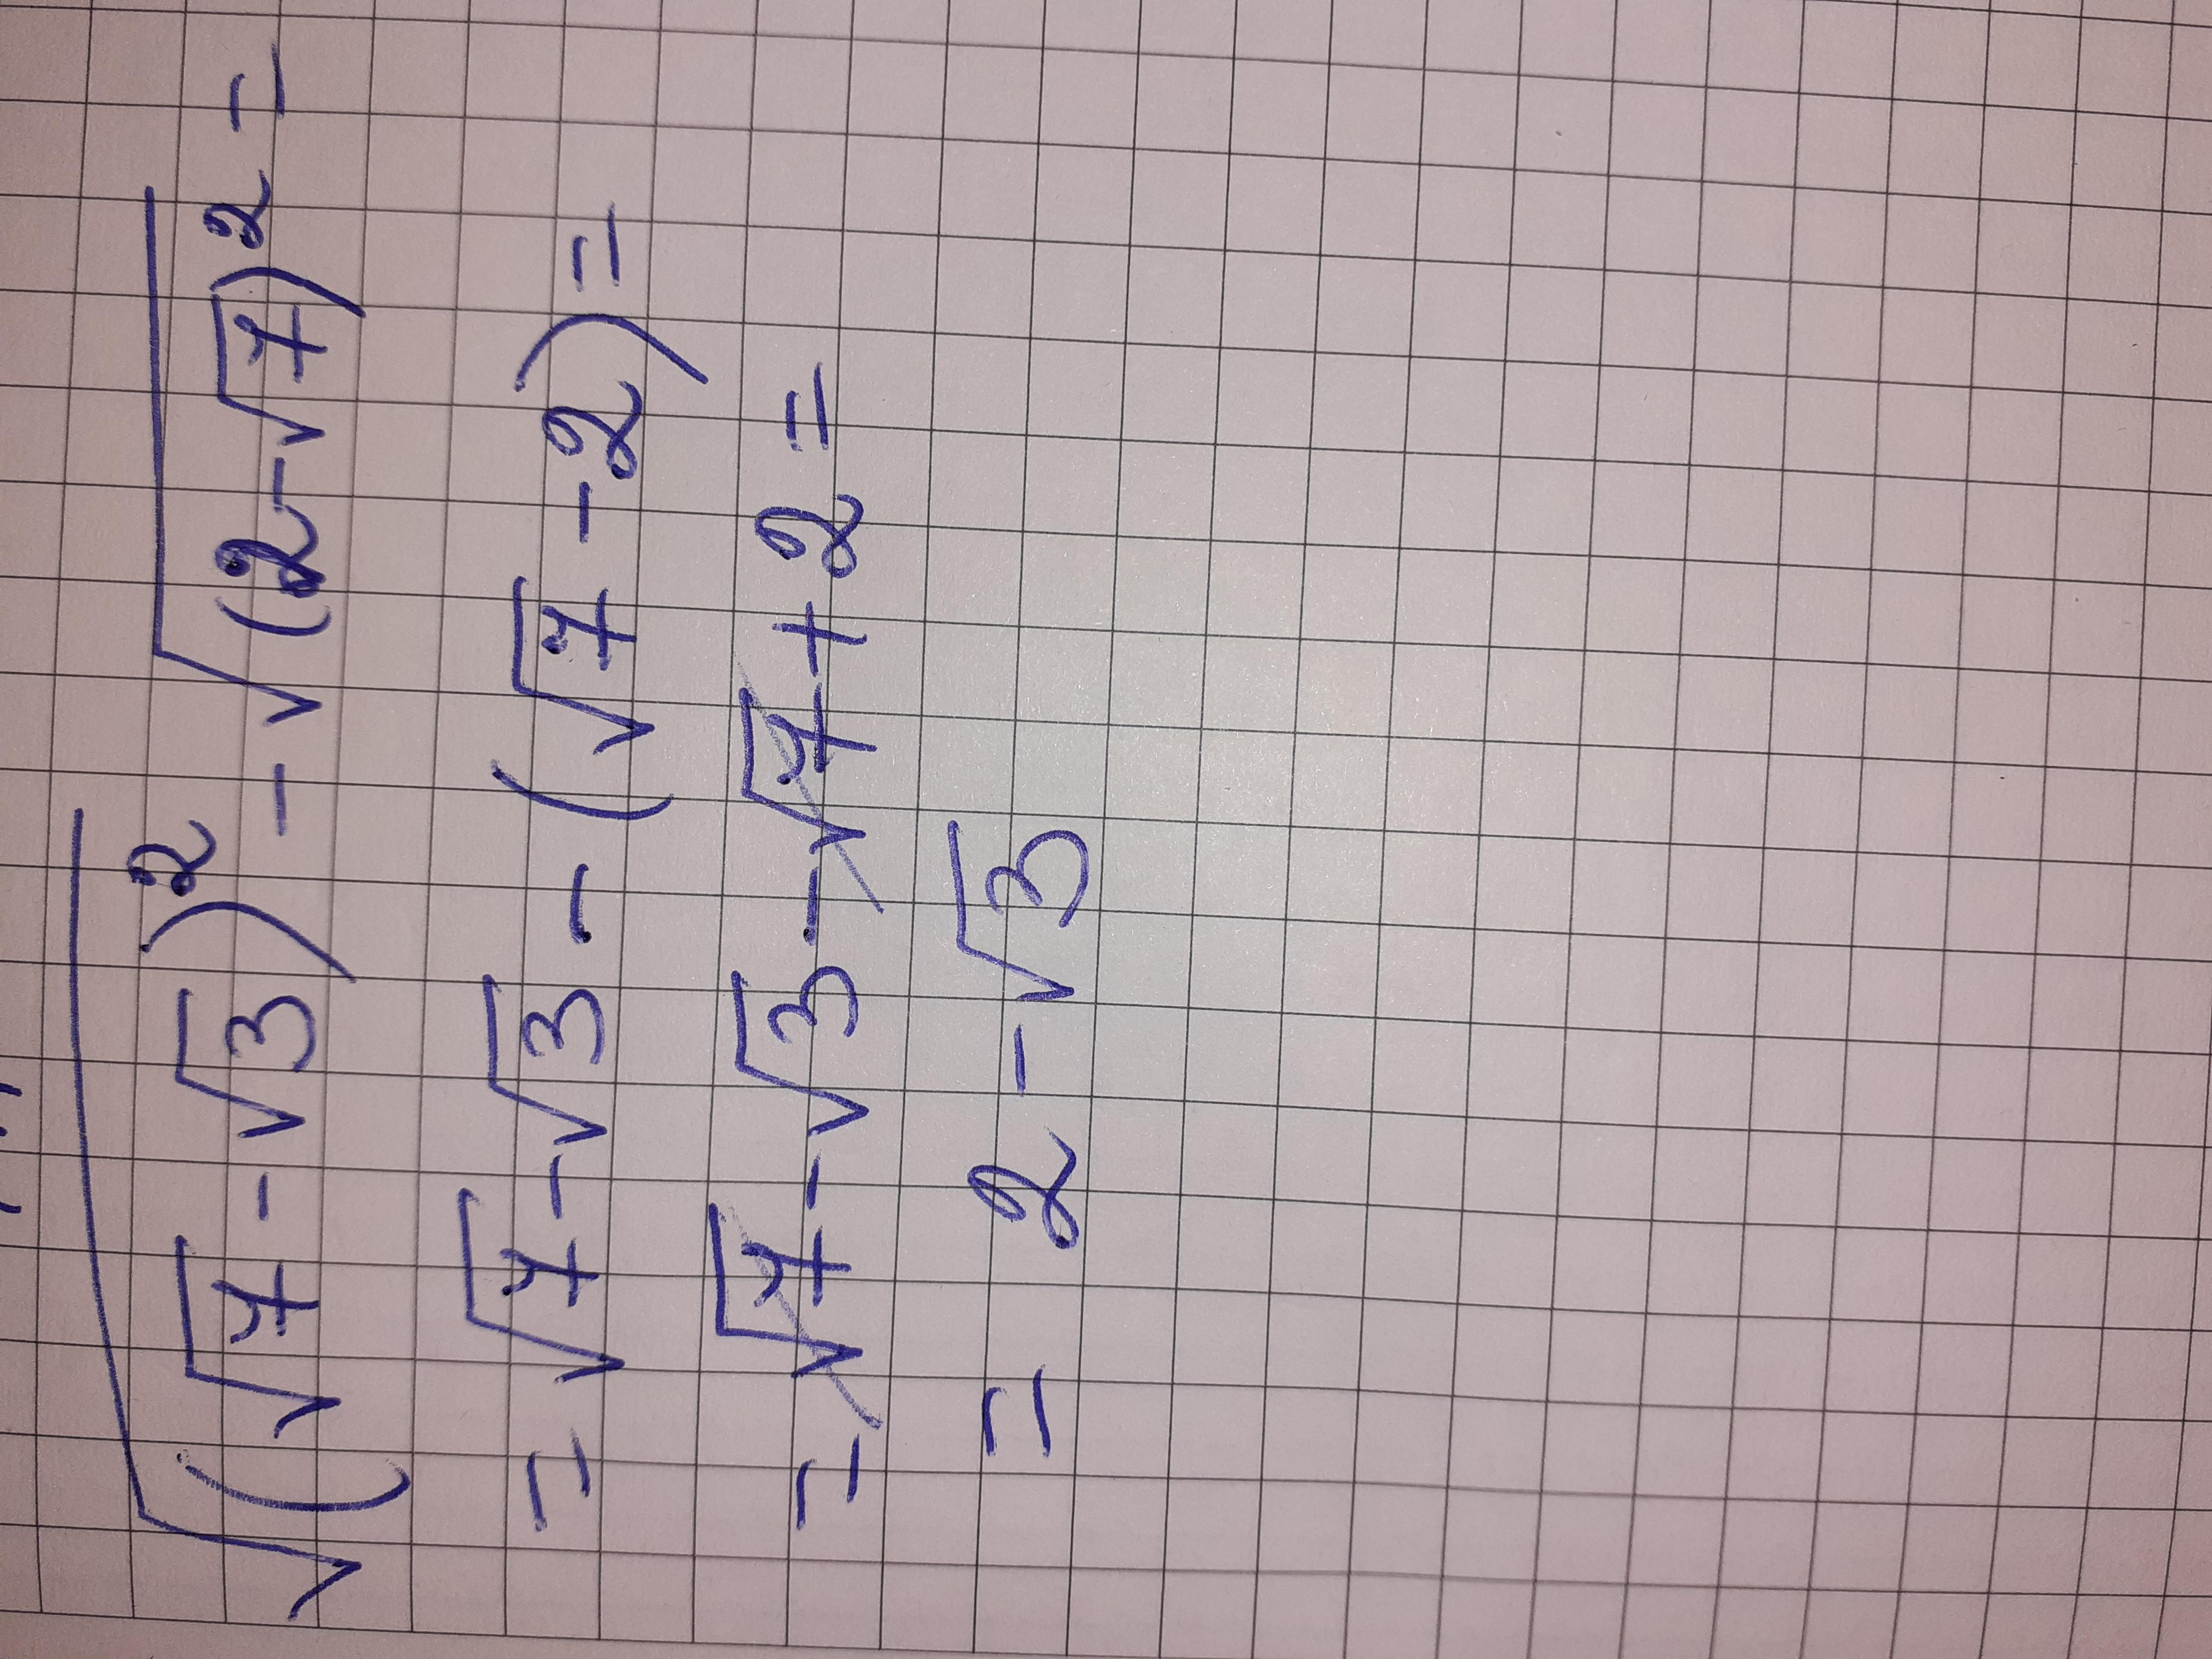 √(√7-√3)² - √(2-√7)² =
= √7-√3 - (√7-2) =
= √7-√3-√7+2 =
= 2-√3